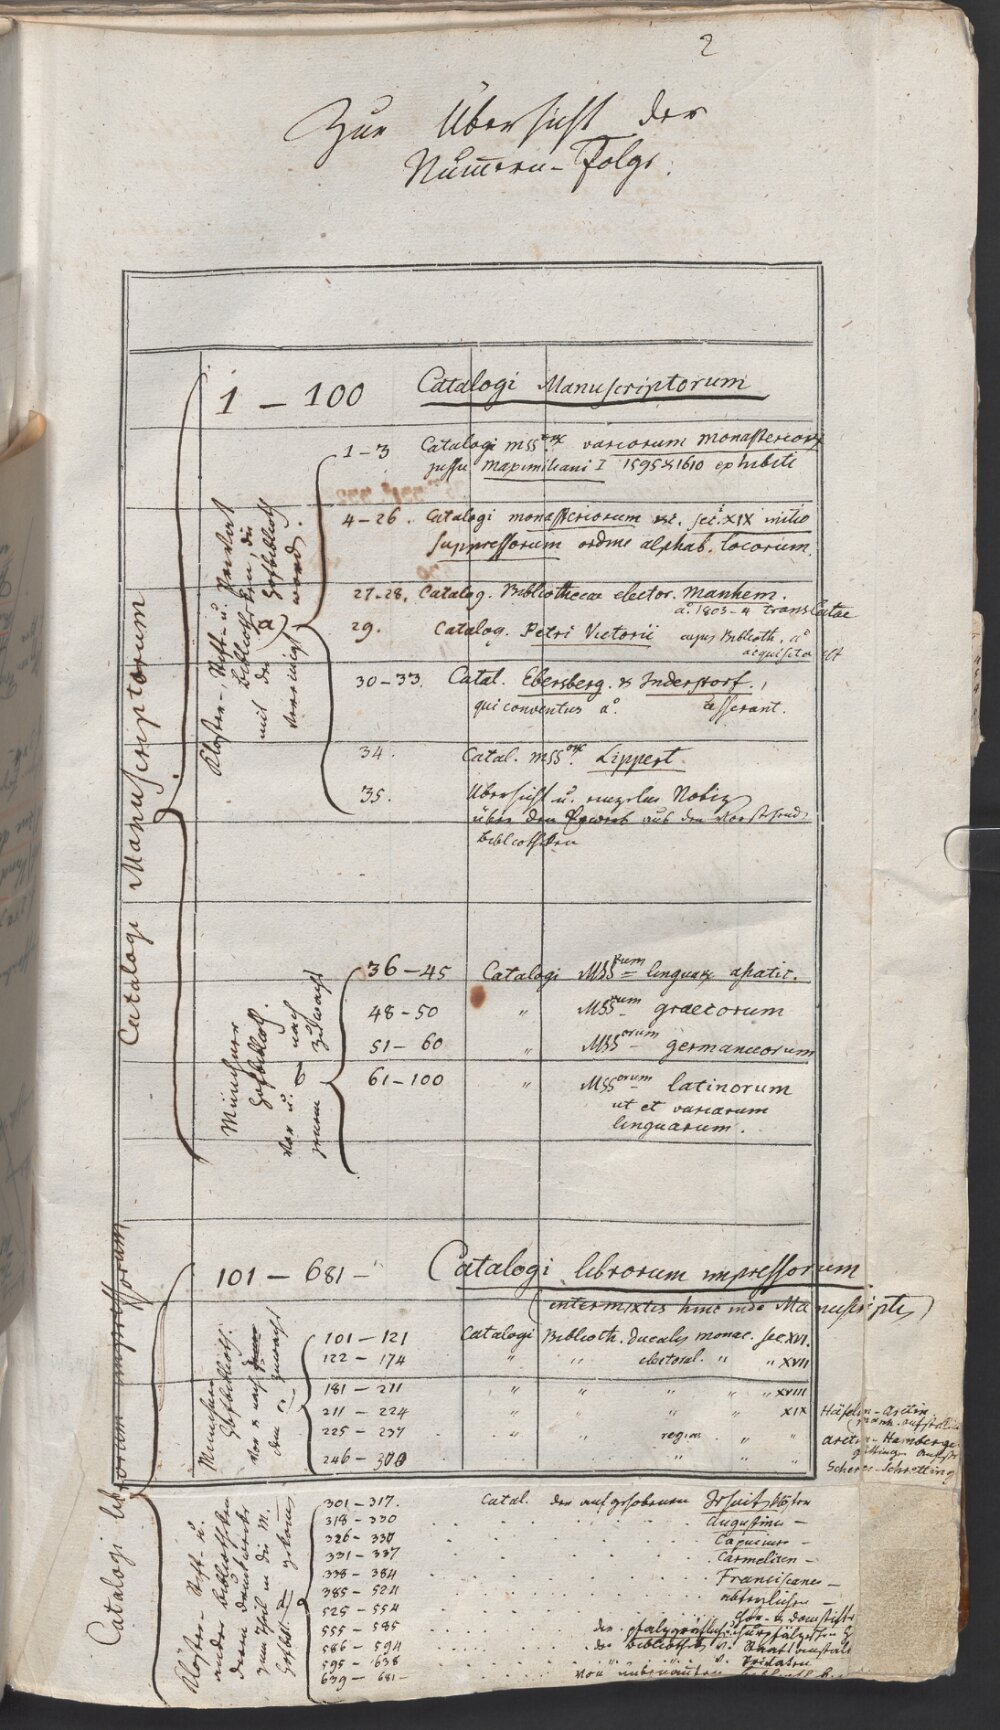 2
Zur Übersicht der
Numern-Folge.
Catalogi Manuscriptorum
1 – 100 Catalogi Manuscriptorum
Kloster-, Stift- u.
Bibliotheken
mit der Hofbiblioth
vereinigt word.
a)
1–3 Catalogi mss. variorum monasterior
jussu Maximiliani I 1595 & 1610 exhibiti
4–26. Catalogi monasteriorum etc. sec. XIX initio
suppressorum ordine alphab. locorum.
27–28. Catalog. Bibliothecae elector. Manhem.
aº. 1803–4 translatae
29. Catalog. Petri Victorii cujus Biblioth. aº
acquisita est
30–33. Catal. Ebersberg. & Inderstorf.
qui conventus aº. asserant.
34. Catal. mss. Lippert.
35. Übersicht u. einzelne Notiz
über den Erwerb aus den vorstehend
Bibliotheken
Münchner
Hofbiblioth.
vor u. nach
Zuwachs
36–45 Catalogi MSSrum linguar. asiatic.
48–50 " MSSrum graecorum
51–60 " MSSorum germanicorum
61–100 " MSSorum latinorum
ut et variarum
linguarum.
Catalogi librorum impressorum
101 – 681 – Catalogi librorum impressorum
(intermixtis hinc inde Manuscriptis)
München
Hofbiblioth.
vor & nach
dem Zuwachs
101–121 Catalogi Biblioth. ducalis monac. sec XVI.
122–174 " " electoral. " " XVII
181–211 " " " " " XVIII
211–224 " " " " XIX Häfelin-Aretin
225–237 " " regia " " Aretin-Hamberger
246–300 " " " Scherer-Schrettinger
Kloster- Stift- u.
andere Bibliotheken
deren Druckwerke
zum Theil in die M.
Hofbibl. gekommen
301–317. Catal. der aufgehobenen Jesuit Klöster
318–330 . . . . . Augustiner –
326–330 . . . . . Capuciner –
331–337 . . . . . Carmeliten –
338–384 . . . . . Franciscaner –
385–524 . . . . . abteylichen –
525–554 . . . . . Chor- & Domstifte
555–585 der pfalzgräflich
586–594 der Bibliothek v. Staatsanstalt
595–638 . . . . . v. Privaten
639–681– von unbenannten